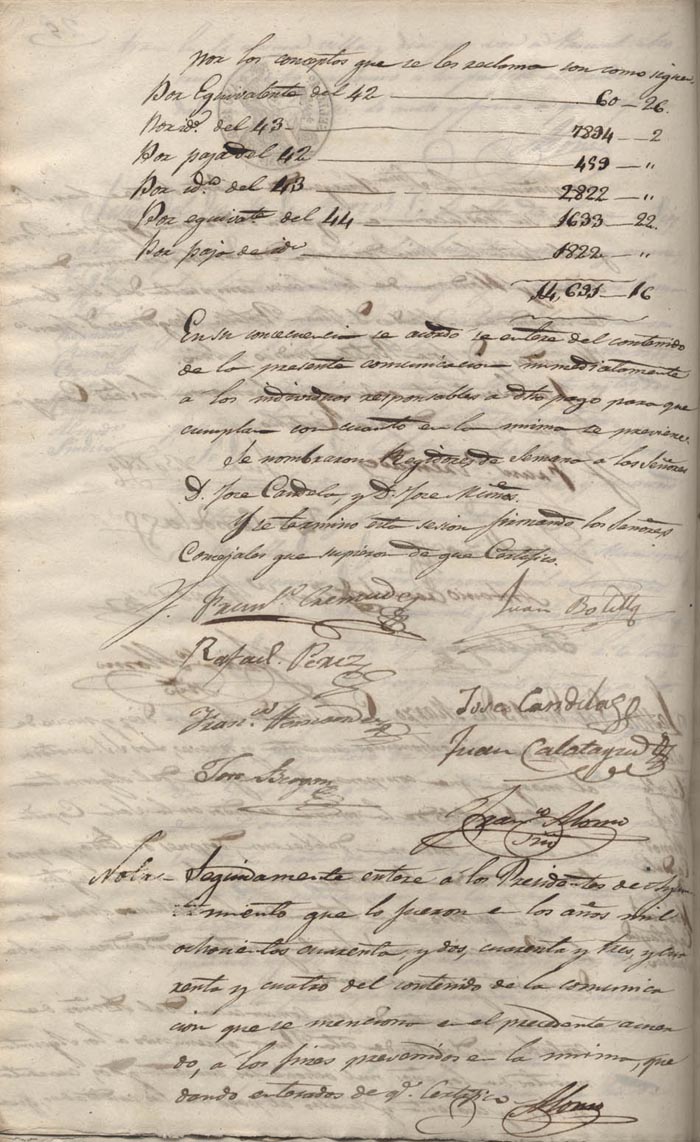 Por los conceptos que se les reclama son como sigue.
Por Equivalente del 42 60 — 26.
Por id.º del 43 7894 — 2
Por paja del 42 459 — "
Por id.º del 43 2822 — "
Por equivte. del 44 1633 — 22.
Por paja de id. 1822 — "
14,691 — 16
En su consecuencia se acordó se entere del contenido
de la presente comunicacion inmediatamente
a los individuos responsables a dho pago para que
cumplan con cuanto en la misma se previene.
Se nombraron Regidores de Semana a los Señores
D. Jose Candela, y D. Jose Muñoz.
Y se termino esta sesion firmando los Señores
Concejales que supieron de que Certifico.
Franco. Cremades
Juan Botella
Rafael Perez
Jose Candela
Franco. Hernandez
Juan Calatayud
Franco. Alonso
Srio
Nota — Seguidamente entere a los Presidentes de Ayun
tamiento que lo fueron en los años mil
ochocientos cuarenta, y dos, cuarenta y tres, y cua
renta y cuatro del contenido de la comunica
cion que se menciona en el precedente acuer
do, a los fines prevenidos en la misma, que
dando enterados de q.e Certifico Alonso